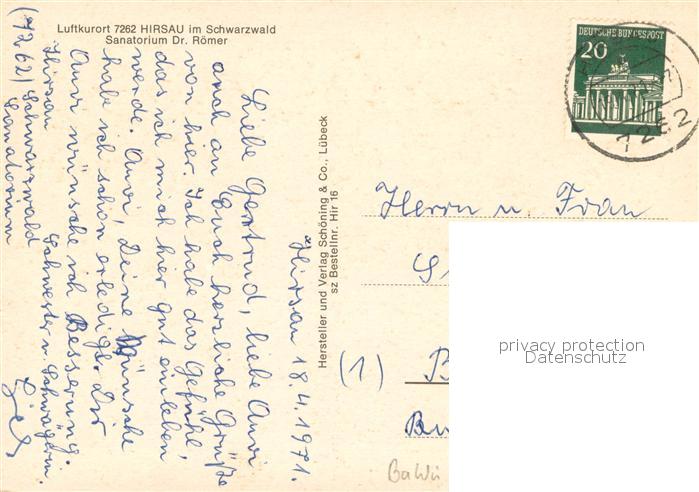 Luftkurort 7262 HIRSAU im Schwarzwald
Sanatorium Dr. Römer
Hirsau 18.4.1971.
Liebe Gertrud, liebe Anni
auch an Euch herzliche Grüße
von hier. Ich habe das Gefühl,
das ich mich hier gut einleben
werde. Anni, Deine Wünsche
habe ich schon erledigt. Dir
Anni wünsche ich Besserung.
Schwester u. Schwägerin.
Hirsau
(7262) Schwarzwald
Sanatorium
Hersteller und Verlag Schöning & Co., Lübeck
sz Bestellnr. Hir 16
DEUTSCHE BUNDESPOST
20
7262
Herrn u. Frau
(1) B
privacy protection
Datenschutz
BaWü